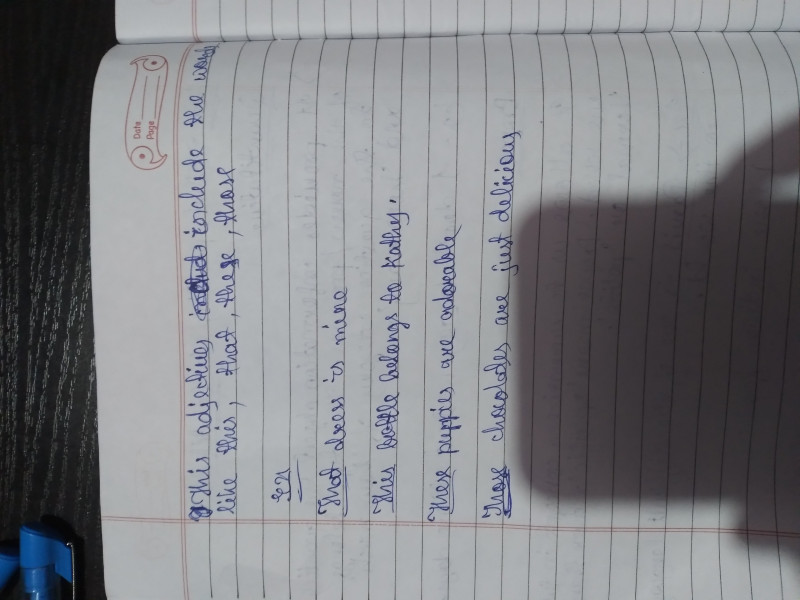 Date
Page
This adjectives include the words
like this, that, these, those
Eg
That dress is mine
This bottle belongs to Kathy.
These puppies are adorable
Those chocolates are just delicious